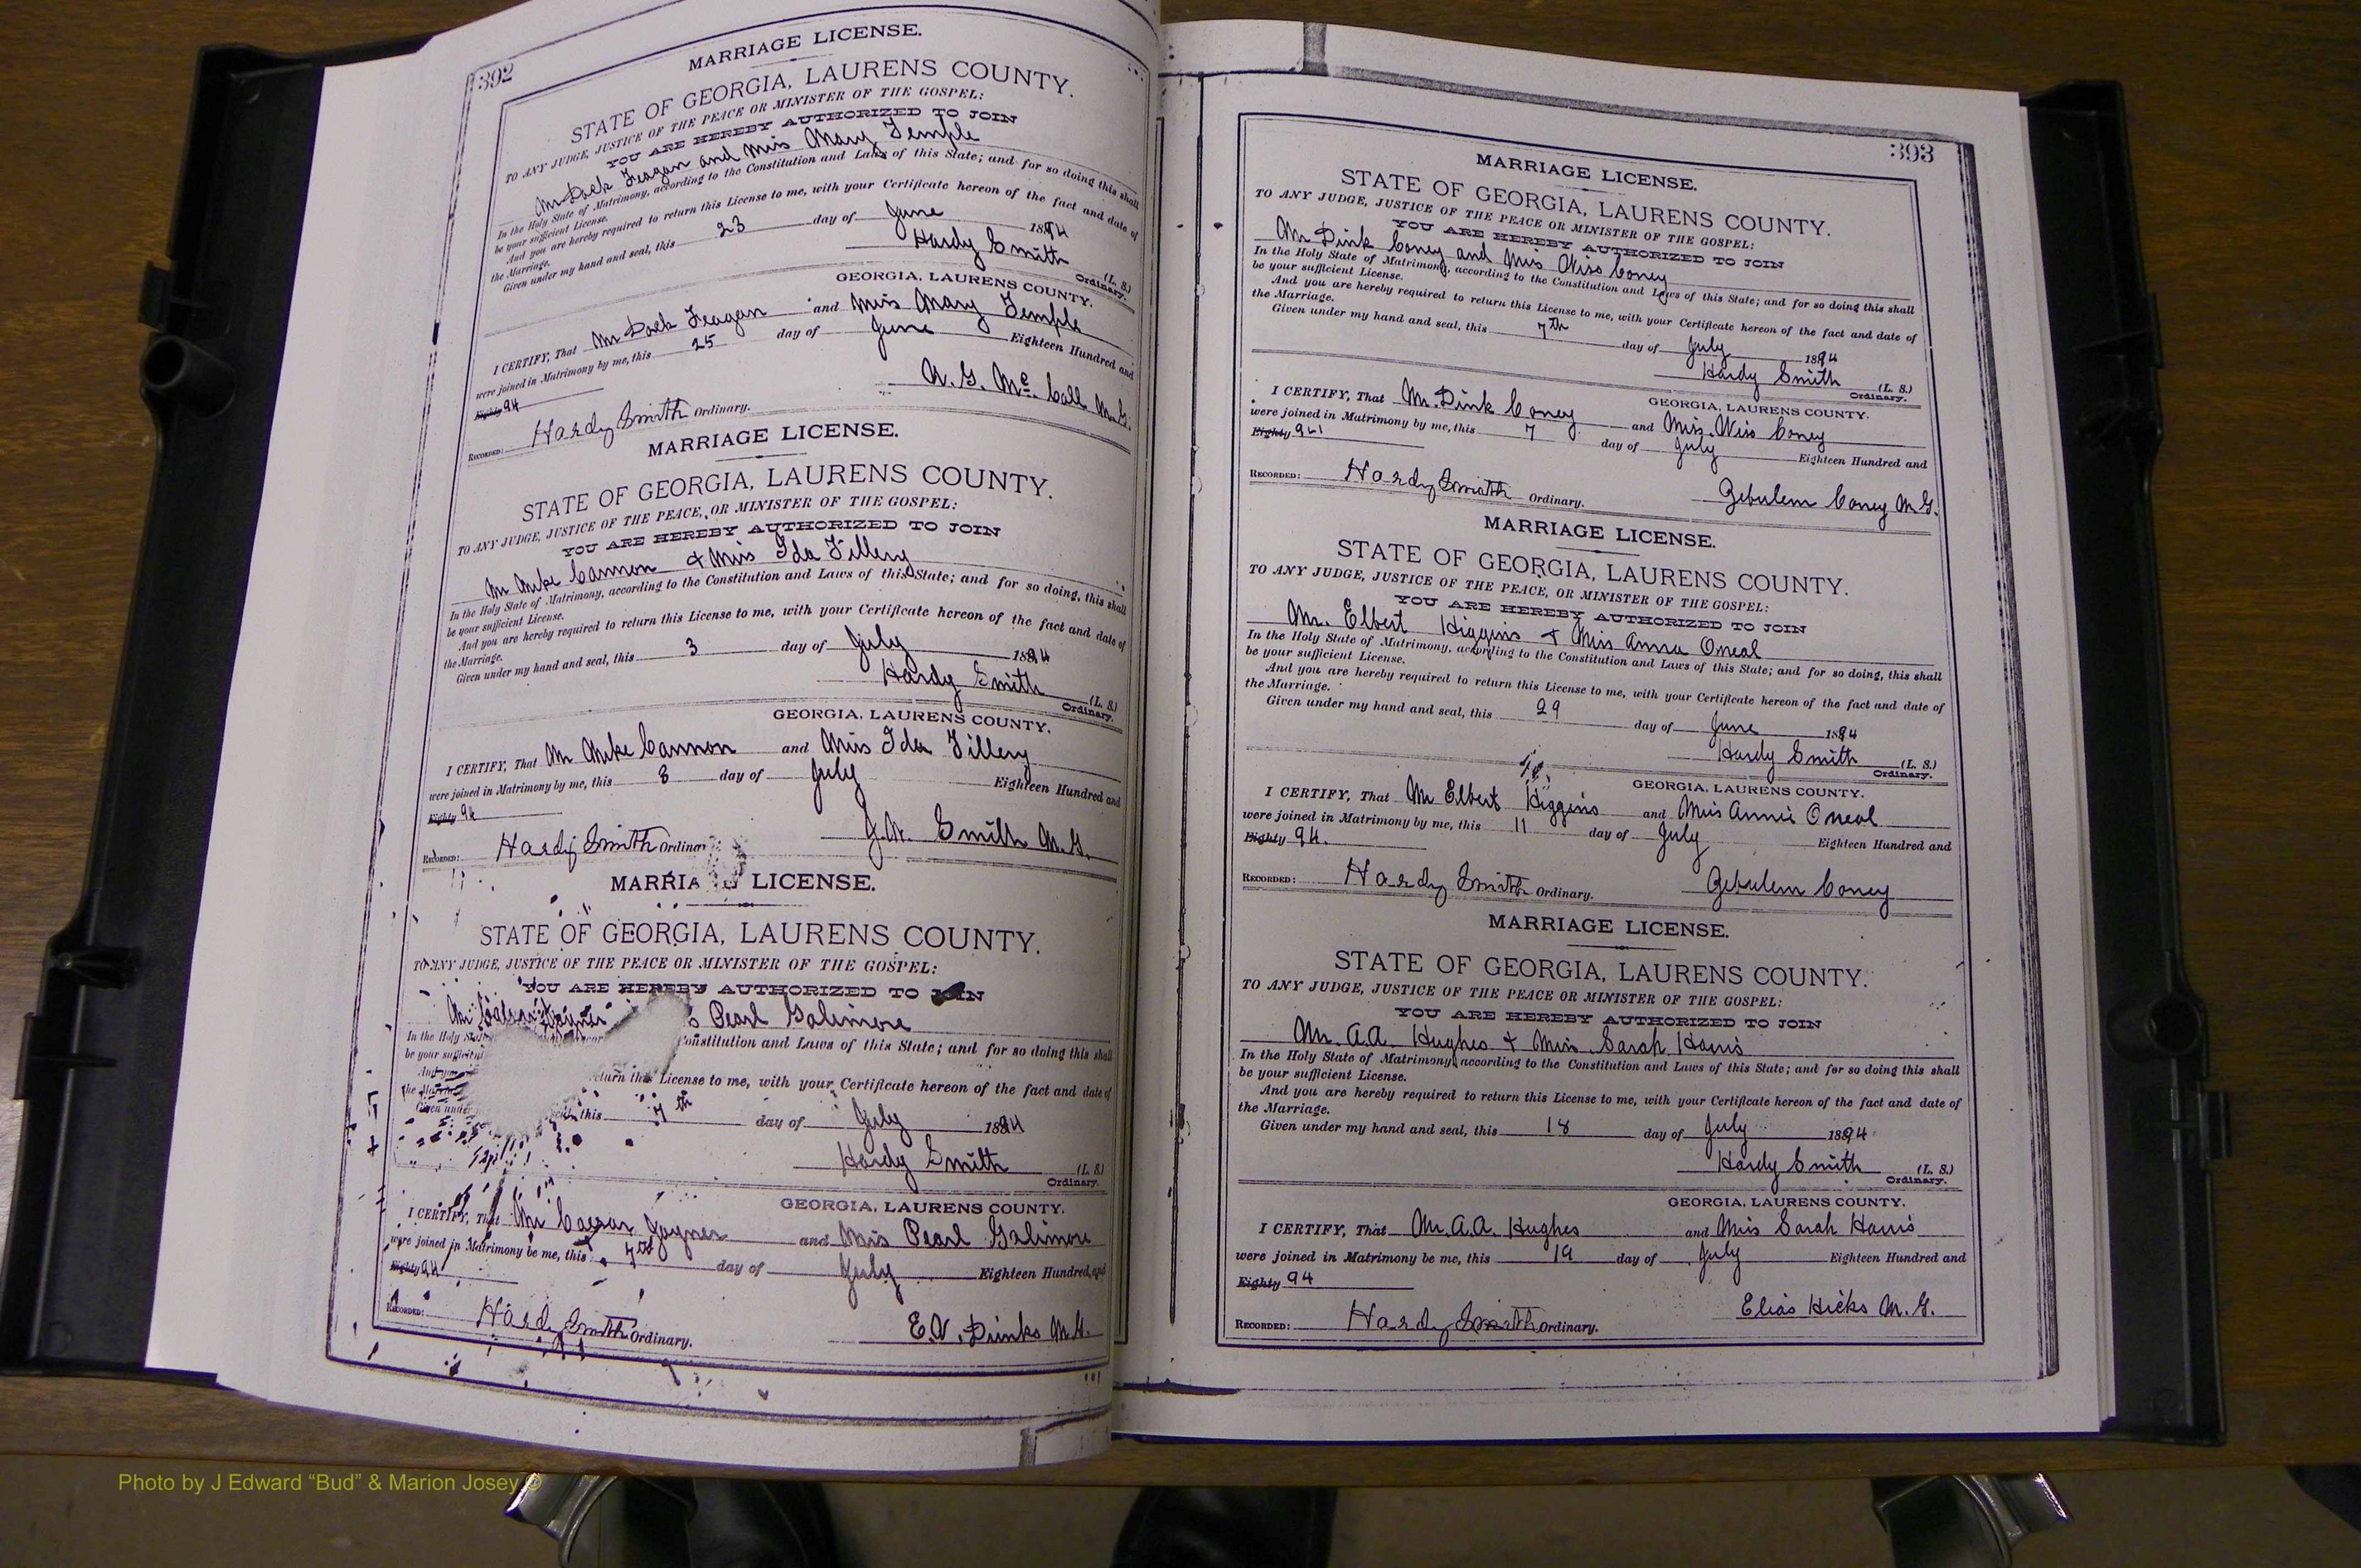 392
MARRIAGE LICENSE.
STATE OF GEORGIA, LAURENS COUNTY.
TO ANY JUDGE, JUSTICE OF THE PEACE OR MINISTER OF THE GOSPEL:
YOU ARE HEREBY AUTHORIZED TO JOIN
Mr Dock Feagan and Miss Mary Temple
In the Holy State of Matrimony, according to the Constitution and Laws of this State; and for so doing this shall
be your sufficient License.
And you are hereby required to return this License to me, with your Certificate hereon of the fact and date of
the Marriage.
Given under my hand and seal, this 23 day of June 1894
Hardy Smith (L. S.)
Ordinary.
GEORGIA, LAURENS COUNTY.
I CERTIFY, That Mr Dock Feagan and Miss Mary Temple
were joined in Matrimony by me, this 25 day of June Eighteen Hundred and
Eighty 94
A. G. Mc. Call M.G.
RECORDED: Hardy Smith Ordinary.
MARRIAGE LICENSE.
STATE OF GEORGIA, LAURENS COUNTY.
TO ANY JUDGE, JUSTICE OF THE PEACE, OR MINISTER OF THE GOSPEL:
YOU ARE HEREBY AUTHORIZED TO JOIN
Mr Mike Cannon & Miss Ida Fillery
In the Holy State of Matrimony, according to the Constitution and Laws of this State; and for so doing, this shall
be your sufficient License.
And you are hereby required to return this License to me, with your Certificate hereon of the fact and date of
the Marriage.
Given under my hand and seal, this 3 day of July 1894
Hardy Smith (L. S.)
Ordinary.
GEORGIA, LAURENS COUNTY.
I CERTIFY, That Mr Mike Cannon and Miss Ida Fillery
were joined in Matrimony by me, this 8 day of July Eighteen Hundred and
Eighty 94
J.W. Smith M.G.
RECORDED: Hardy Smith Ordinary
MARRIA LICENSE.
STATE OF GEORGIA, LAURENS COUNTY.
TO ANY JUDGE, JUSTICE OF THE PEACE OR MINISTER OF THE GOSPEL:
YOU ARE HEREBY AUTHORIZED TO JOIN
Mr Caesar Joyner s Pearl Galimore
In the Holy Constitution and Laws of this State; and for so doing this shall
be your
return this License to me, with your Certificate hereon of the fact and date of
the
Given under this 7th day of July 1894
Hardy Smith (L. S.)
Ordinary.
GEORGIA, LAURENS COUNTY.
I CERTIFY, That Mr Caesar Joyner and Miss Pearl Galimore
were joined in Matrimony be me, this 7th day of July Eighteen Hundred, and
Eighty 94
RECORDED: Hardy Smith Ordinary.
E.W. Dinks M.G.
393
MARRIAGE LICENSE.
STATE OF GEORGIA, LAURENS COUNTY.
TO ANY JUDGE, JUSTICE OF THE PEACE OR MINISTER OF THE GOSPEL:
YOU ARE HEREBY AUTHORIZED TO JOIN
Mr Dink Coney and Miss Wiss Coney
In the Holy State of Matrimony, according to the Constitution and Laws of this State; and for so doing this shall
be your sufficient License.
And you are hereby required to return this License to me, with your Certificate hereon of the fact and date of
the Marriage.
Given under my hand and seal, this 7th day of July 1894
Hardy Smith (L. S.)
Ordinary.
GEORGIA, LAURENS COUNTY.
I CERTIFY, That Mr. Dink Coney and Miss. Wiss Coney
were joined in Matrimony by me, this 7 day of July Eighteen Hundred and
Eighty 94
RECORDED: Hardy Smith Ordinary.
Zebulem Coney M.G.
MARRIAGE LICENSE.
STATE OF GEORGIA, LAURENS COUNTY.
TO ANY JUDGE, JUSTICE OF THE PEACE, OR MINISTER OF THE GOSPEL:
YOU ARE HEREBY AUTHORIZED TO JOIN
Mr. Elbert Higgins & Miss Anna Oneal
In the Holy State of Matrimony, according to the Constitution and Laws of this State; and for so doing, this shall
be your sufficient License.
And you are hereby required to return this License to me, with your Certificate hereon of the fact and date of
the Marriage.
Given under my hand and seal, this 29 day of June 1894
Hardy Smith (L. S.)
Ordinary.
GEORGIA, LAURENS COUNTY.
I CERTIFY, That Mr Elbert Higgins and Miss Annie Oneal
were joined in Matrimony by me, this 11 day of July Eighteen Hundred and
Eighty 94.
RECORDED: Hardy Smith Ordinary.
Zebulem Coney
MARRIAGE LICENSE.
STATE OF GEORGIA, LAURENS COUNTY.
TO ANY JUDGE, JUSTICE OF THE PEACE OR MINISTER OF THE GOSPEL:
YOU ARE HEREBY AUTHORIZED TO JOIN
Mr. A.A. Hughes & Miss Sarah Harris
In the Holy State of Matrimony, according to the Constitution and Laws of this State; and for so doing this shall
be your sufficient License.
And you are hereby required to return this License to me, with your Certificate hereon of the fact and date of
the Marriage.
Given under my hand and seal, this 18 day of July 1894
Hardy Smith (L. S.)
Ordinary.
GEORGIA, LAURENS COUNTY.
I CERTIFY, That Mr A.A. Hughes and Miss Sarah Harris
were joined in Matrimony be me, this 19 day of July Eighteen Hundred and
Eighty 94
Elias Hicks M.G.
RECORDED: Hardy Smith Ordinary.
Photo by J Edward “Bud” & Marion Josey ©